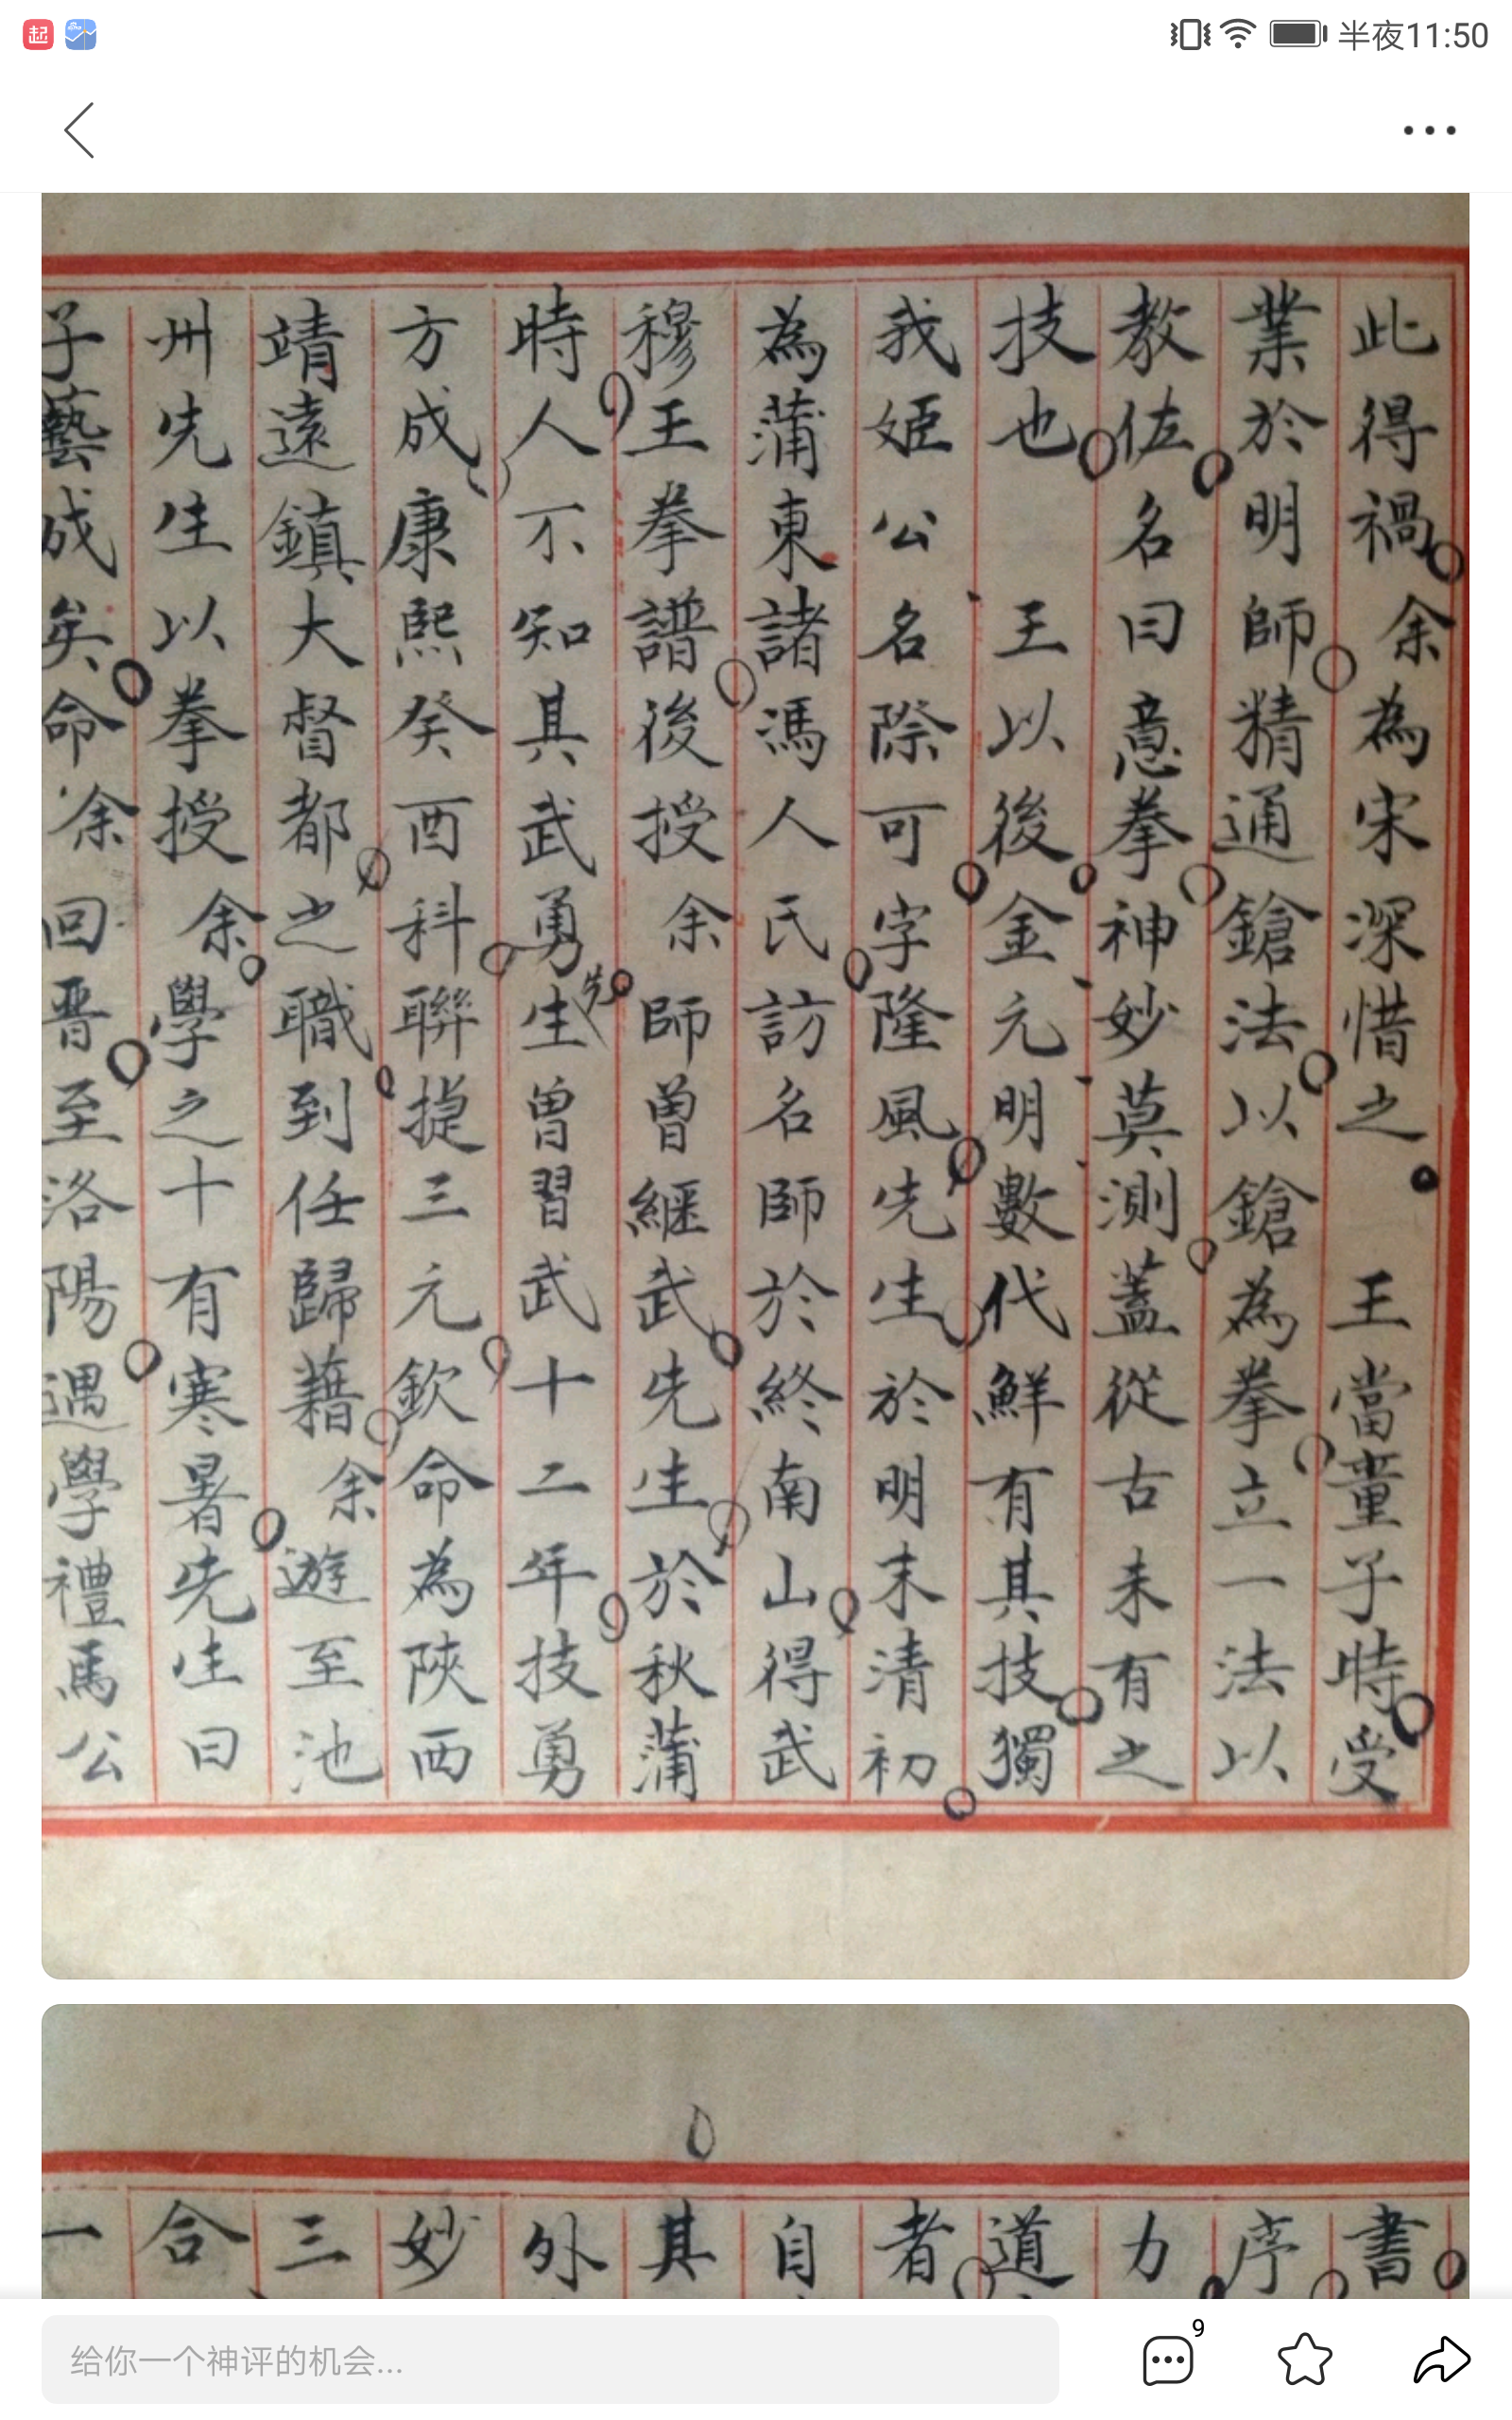 起
半夜11:50
此得禍余為宋深惜之 王當童子時受
業於明師精通鎗法以鎗為拳立一法以
教佐名曰意拳神妙莫測蓋從古未有之
技也 王以後金元明數代鮮有其技獨
我姬公名際可字隆風先生於明末清初
為蒲東諸馮人氏訪名師於終南山得武
穆王拳譜後授余師曾繼武先生於秋蒲
時人不知其武勇先生曾習武十二年技勇
方成康熙癸酉科聯捷三元欽命為陝西
靖遠鎮大都督之職到任歸籍余遊至池
州先生以拳授余學之十有寒暑先生曰
子藝成矣命余回晋至洛陽遇學禮馬公
書
序
力
道
者
自
其
外
妙
三
合
一
给你一个神评的机会...
9